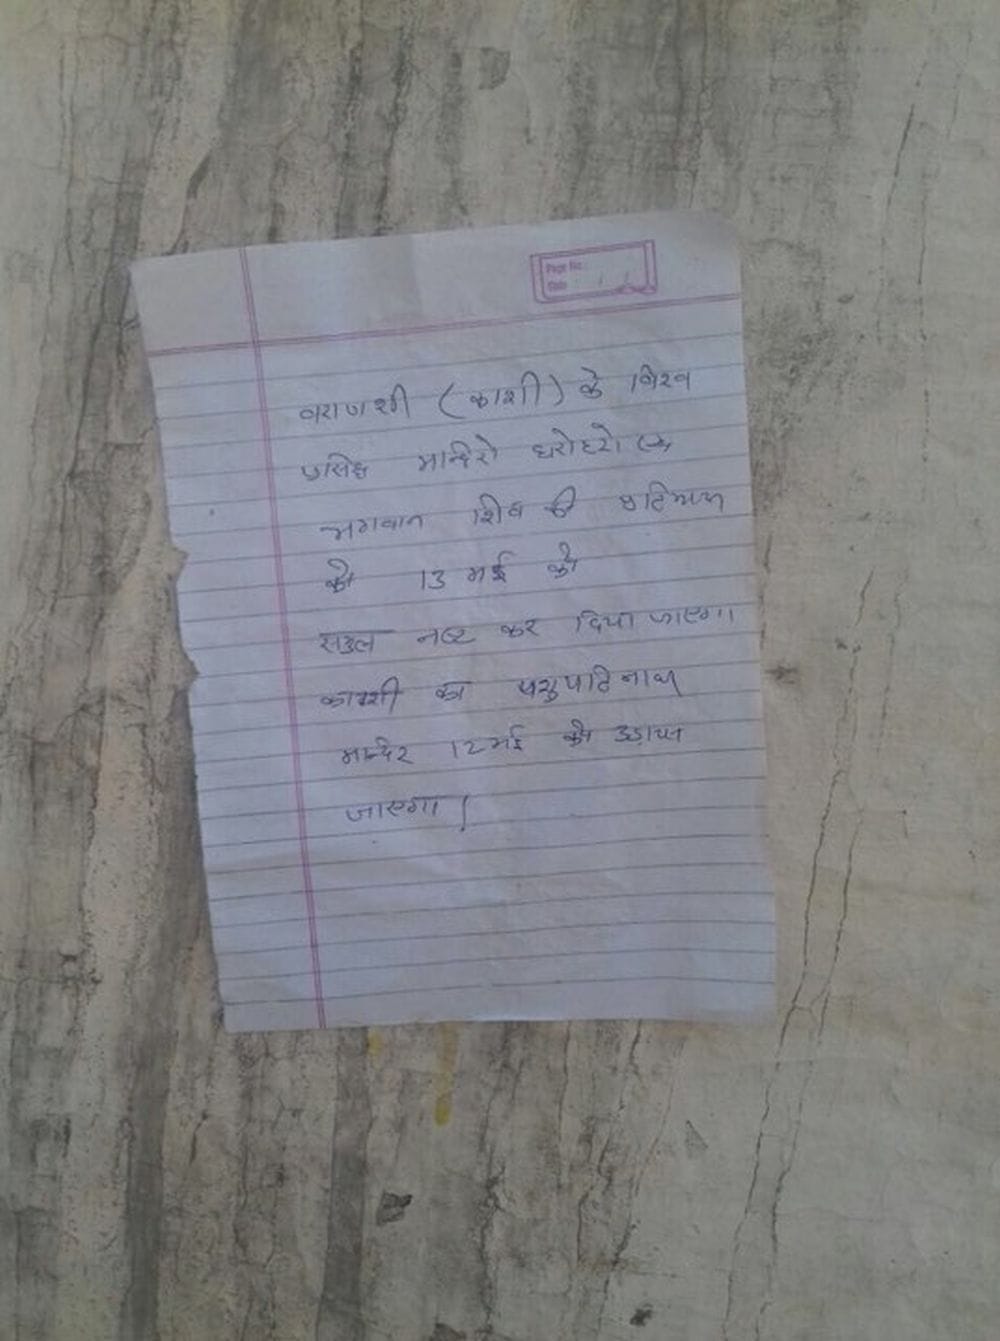 Page No.:
Date
वाराणशी (काशी) के विश्व
प्रसिद्ध मन्दिरो धरोहरो एवं
भगवान शिव की
को 13 मई को
नष्ट कर दिया जाएगा
काशी का पशुपतिनाथ
मन्दिर 12 मई को उड़ाया
जाएगा।